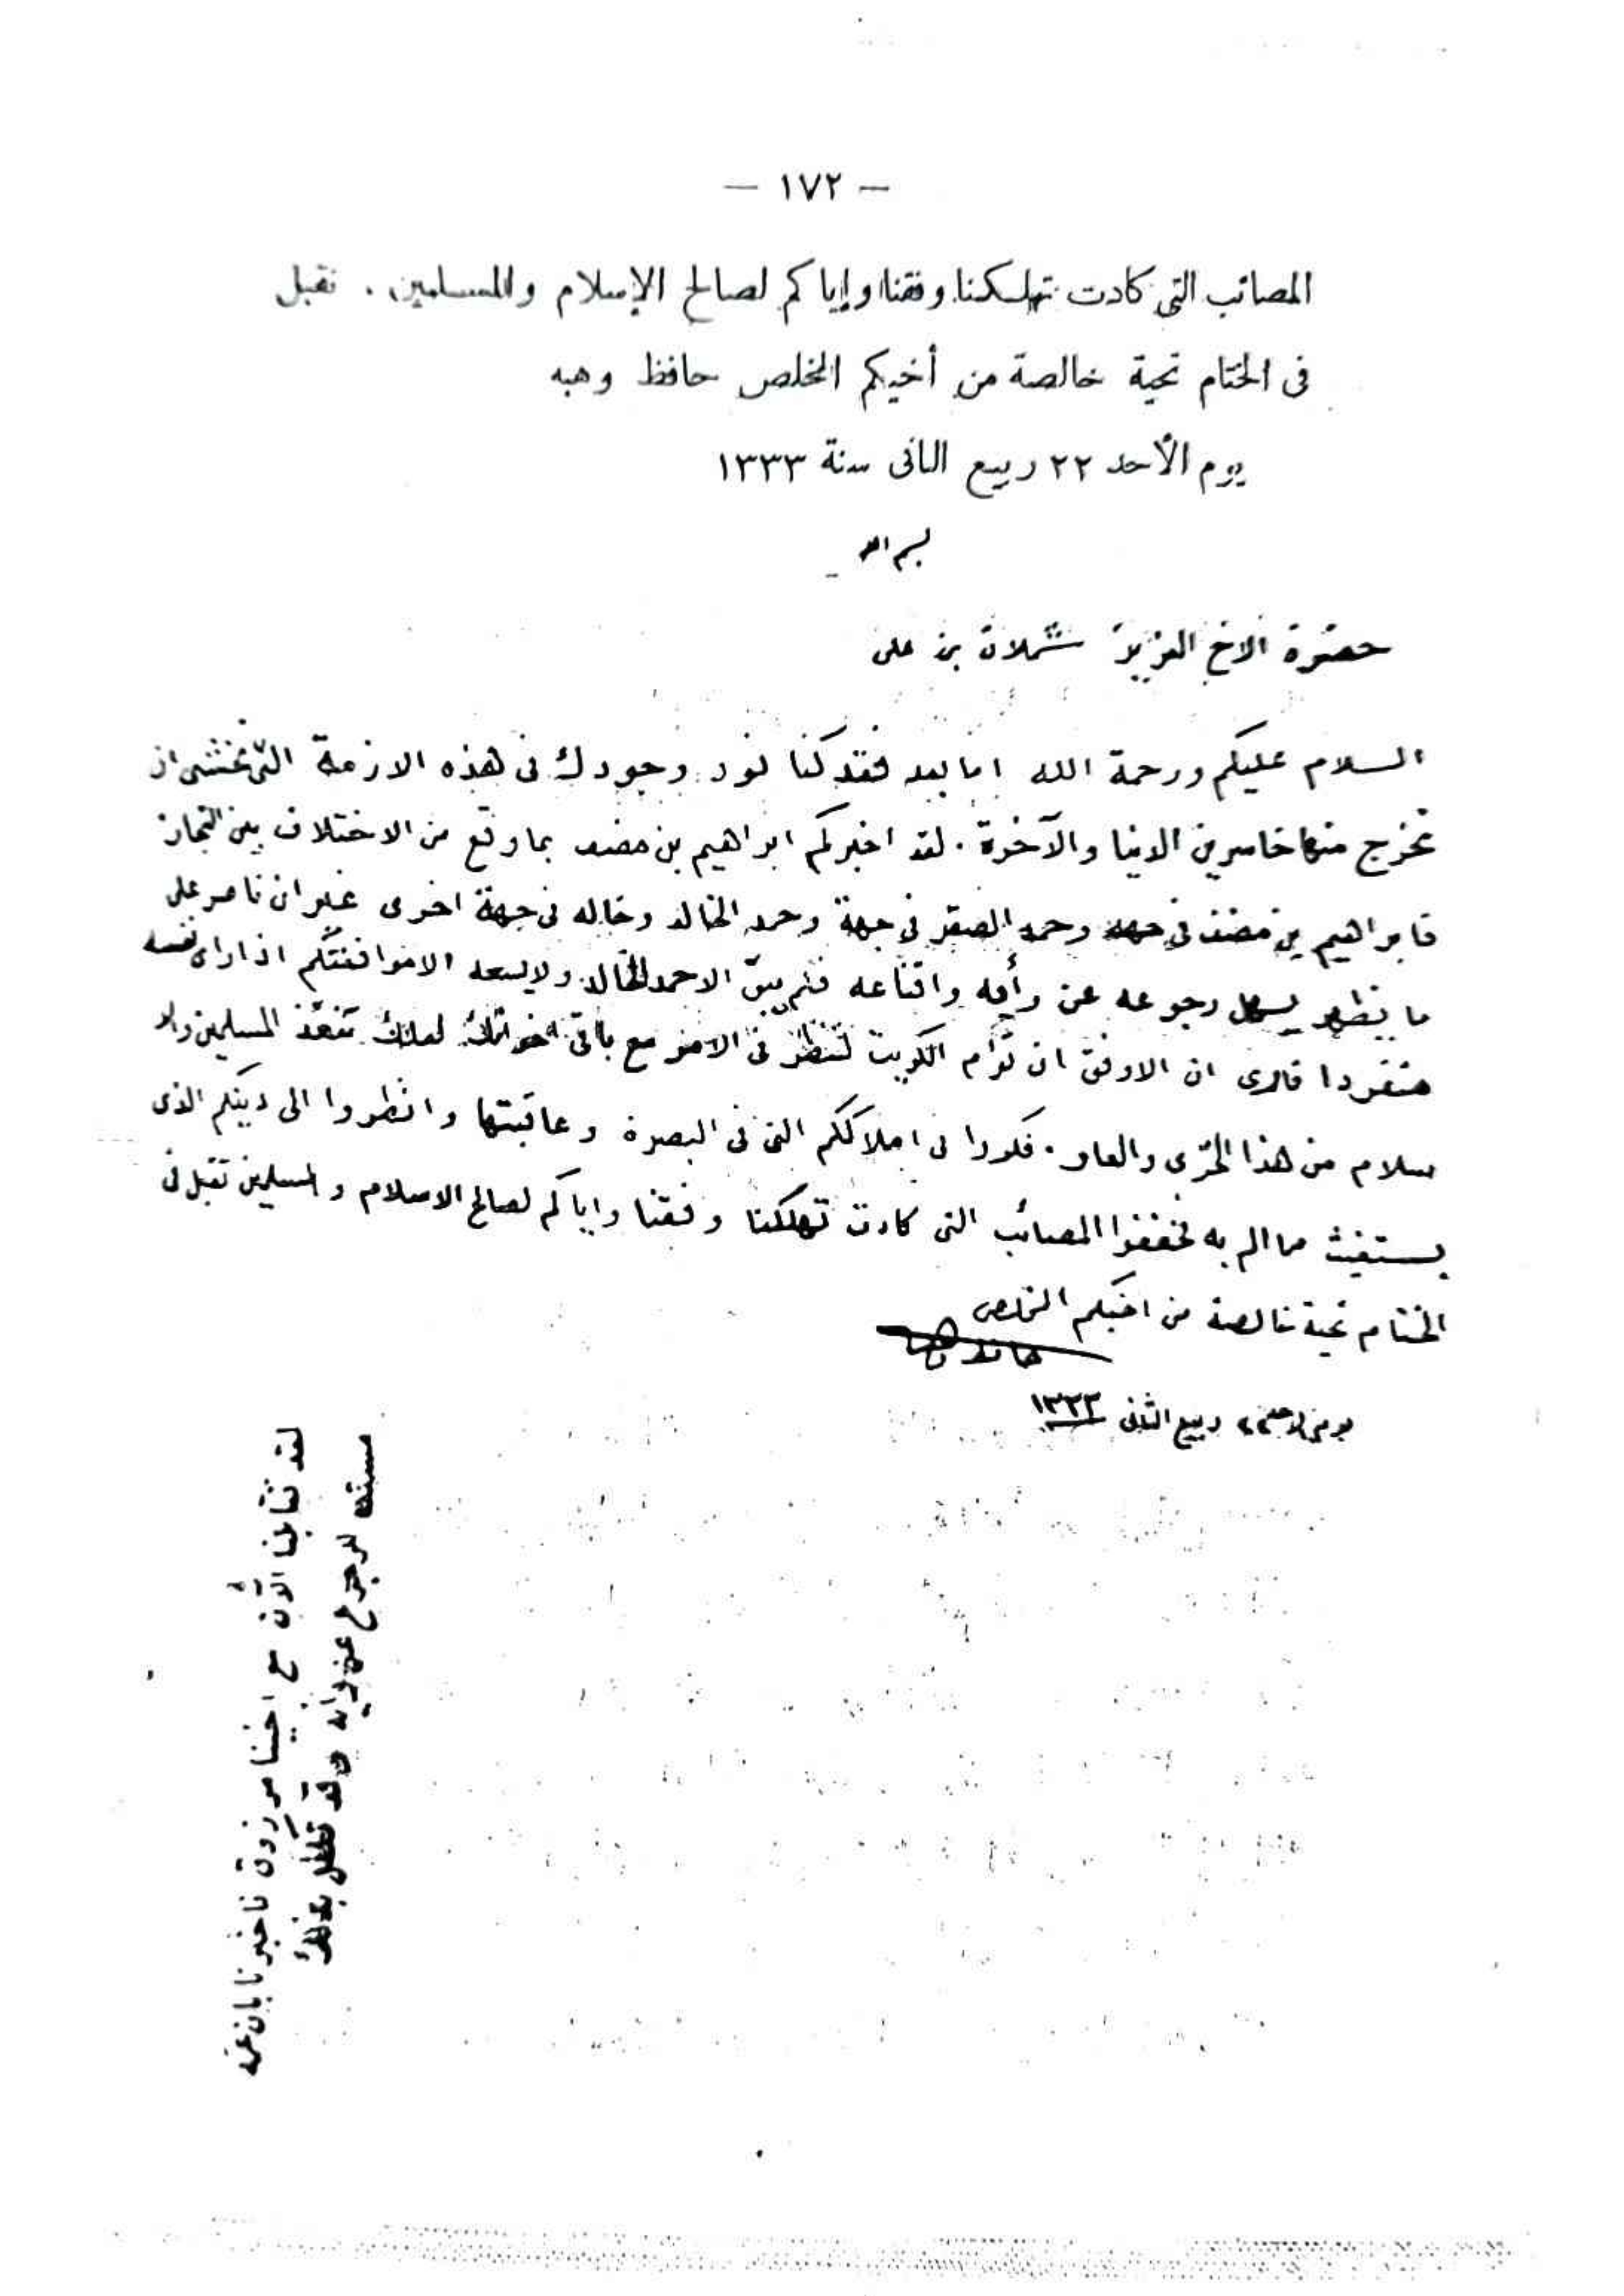 — ١٧٢ —
المصائب التى كادت تهلكنا وفقنا وإياكم لصالح الإسلام والمسلمين . تقبل
فى الختام تحية خالصة من أخيكم المخلص حافظ وهبه
يوم الأحد ٢٢ ربيع الثانى سنة ١٣٣٣
بسم الله
حضرة الاخ العزيز شملان بن على
السلام عليكم ورحمة الله اما بعد فقد كنا نود وجودك فى هذه الازمة التى نخشى ان
نخرج منها خاسرين الدنيا والآخرة . لقد اخبركم ابراهيم بن مضف بما وقع من الاختلاف بين التجار
فابراهيم بن مضف فى جهة وحمد الصقر فى جهة وحمد الخالد وخاله فى جهة اخرى غير ان ناصر على
ما يظهر يسهل رجوعه عن رأيه واقناعه فلم يبق الا حمد الخالد ولا يسعه الا موافقتكم اذا رأى نفسه
منفردا فارى ان الاوفق ان تؤم الكويت لتنظر فى الامر مع باقى اخوانك لعلك تنقذ المسلمين والا
سلام من هذا الخزى والعار . فكروا فى املاككم التى فى البصرة وعاقبتها وانظروا الى دينكم الذى
يستغيث مما الم به فخففوا المصائب التى كادت تهلكنا وفقنا واياكم لصالح الاسلام والمسلمين تقبل فى
الختام تحية خالصة من اخيكم المخلص
حافظ وهبه
ربيع الثانى ١٣٣٣
لقد تقابلنا الآن مع اخينا مرزوق فاخبرنا بان عمه
مستعد للرجوع عن رأيه وقد تكفل بذلك